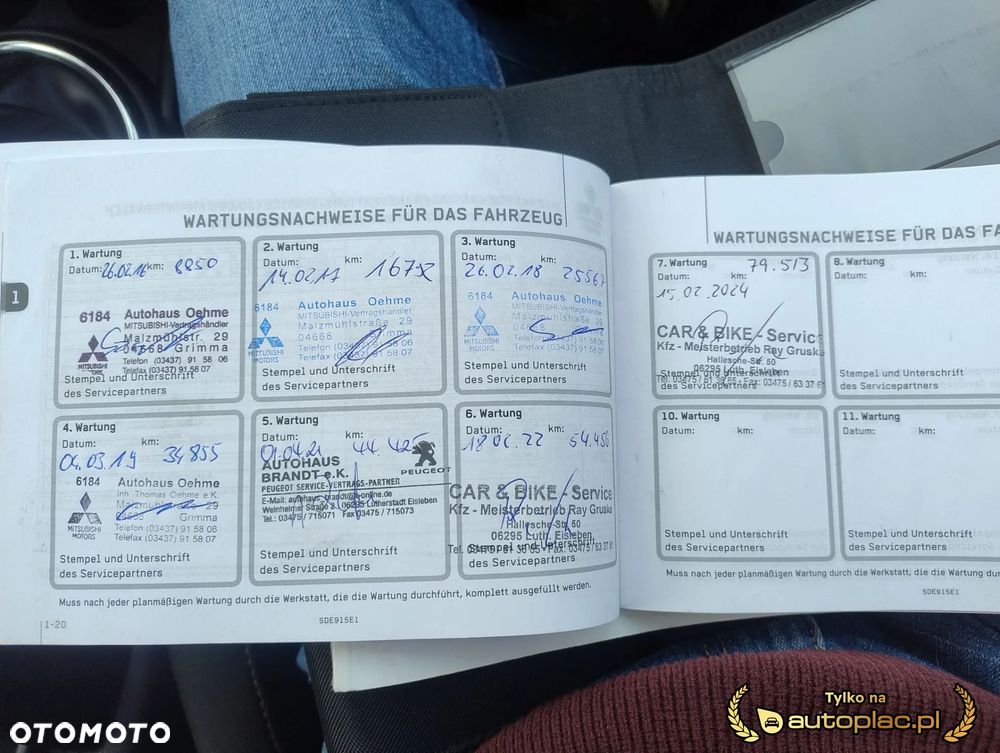 WARTUNGSNACHWEISE FÜR DAS FAHRZEUG
1. Wartung
Datum: 26.02.16 km: 8850
6184 Autohaus Oehme
MITSUBISHI-Vertragshändler
Malzmühlstr. 29
04668 Grimma
MITSUBISHI MOTORS
Telefon (03437) 91 58 06
Telefax (03437) 91 58 07
Stempel und Unterschrift
des Servicepartners
2. Wartung
Datum: km:
14.02.17 16752
6184 Autohaus Oehme
MITSUBISHI-Vertragshändler
Malzmühlstraße 29
04668 Grimma
MITSUBISHI MOTORS
Telefon (03437) 91 58 06
Telefax (03437) 91 58 07
Stempel und Unterschrift
des Servicepartners
3. Wartung
Datum: km:
26.02.18 25567
6184 Autohaus Oehme
MITSUBISHI-Vertragshändler
Malzmühlstraße 29
Grimma
MITSUBISHI MOTORS
Telefon (03437) 91 58 06
Telefax (03437) 91 58 07
Stempel und Unterschrift
des Servicepartners
4. Wartung
Datum: km:
04.03.19 34855
6184 Autohaus Oehme
Inh Thomas Oehme e K.
Malzmühlstraße 29
Grimma
MITSUBISHI MOTORS
Telefon (03437) 91 58 06
Telefax (03437) 91 58 07
Stempel und Unterschrift
des Servicepartners
5. Wartung
Datum: km:
01.04.21 44.425
AUTOHAUS
BRANDT e.K. PEUGEOT
PEUGEOT SERVICE-VERTRAGS-PARTNER
E-Mail: autohaus_brandt@t-online.de
Weinheimer Straße 2 06295 Lutherstadt Eisleben
Tel.: 03475 / 715071 Fax 03475 / 715073
Stempel und Unterschrift
des Servicepartners
6. Wartung
Datum: km:
54.456
CAR & BIKE - Service
Kfz - Meisterbetrieb Ray Gruska
Hallesche-Str. 50
06295 Luth. Eisleben
Stempel und Unterschrift
des Servicepartners
Muss nach jeder planmäßigen Wartung durch die Werkstatt, die die Wartung durchführt, komplett ausgefüllt werden.
1-20 SDE915E1
1
WARTUNGSNACHWEISE FÜR DAS FA
7. Wartung
Datum: km: 79.513
15.02.2024
CAR & BIKE - Servic
Kfz - Meisterbetrieb Ray Gruska
Hallesche-Str. 50
06295 Luth. Eisleben
Stempel und Unterschrift
Tel. 03475/ 61 36 85 - Fax: 03475 / 63 37 61
des Servicepartners
8. Wartung
Datum: km:
Stempel und Unterschrift
des Servicepartners
10. Wartung
Datum: km:
Stempel und Unterschrift
des Servicepartners
11. Wartung
Datum: km:
Stempel und Unterschrift
des Servicepartners
Muss nach jeder planmäßigen Wartung durch die Werkstatt, die die Wartung du
SDE915E1
OTOMOTO
Tylko na
autoplac.pl